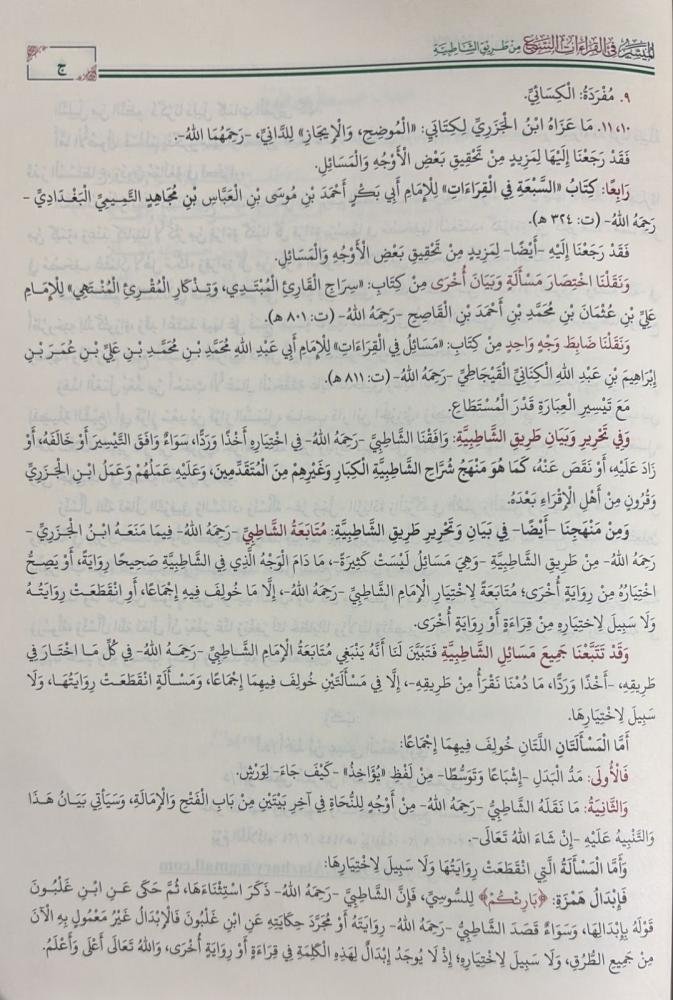 المُيَسَّرُ فِي القِرَاءَاتِ السَّبْعِ مِنْ طَرِيقِ الشَّاطِبِيَّةِ
ج
٩. مُفْرَدَةُ: الْكِسَائِيِّ.
١٠، ١١. مَا عَزَاهُ ابْنُ الْجَزَرِيِّ لِكِتَابَيِ: «الْمُوضِحِ، وَالْإِيجَازِ» لِلدَّانِيِّ، -رَحِمَهُمَا اللهُ-.
فَقَدْ رَجَعْنَا إِلَيْهَا لِمَزِيدٍ مِنْ تَحْقِيقِ بَعْضِ الْأَوْجُهِ وَالْمَسَائِلِ.
رَابِعًا: كِتَابُ «السَّبْعَةِ فِي الْقِرَاءَاتِ» لِلْإِمَامِ أَبِي بَكْرٍ أَحْمَدَ بْنِ مُوسَى بْنِ الْعَبَّاسِ بْنِ مُجَاهِدٍ التَّمِيمِيِّ الْبَغْدَادِيِّ -
رَحِمَهُ اللهُ- (ت: ٣٢٤ هـ).
فَقَدْ رَجَعْنَا إِلَيْهِ -أَيْضًا- لِمَزِيدٍ مِنْ تَحْقِيقِ بَعْضِ الْأَوْجُهِ وَالْمَسَائِلِ.
وَنَقَلْنَا اخْتِصَارَ مَسْأَلَةٍ وَبَيَانَ أُخْرَى مِنْ كِتَابِ: «سِرَاجِ الْقَارِئِ الْمُبْتَدِي، وَتِذْكَارِ الْمُقْرِئِ الْمُنْتَهِي» لِلْإِمَامِ
عَلِيِّ بْنِ عُثْمَانَ بْنِ مُحَمَّدِ بْنِ أَحْمَدَ بْنِ الْقَاصِحِ -رَحِمَهُ اللهُ- (ت: ٨٠١ هـ).
وَنَقَلْنَا ضَابِطَ وَجْهٍ وَاحِدٍ مِنْ كِتَابِ: «مَسَائِلُ فِي الْقِرَاءَاتِ» لِلْإِمَامِ أَبِي عَبْدِ اللهِ مُحَمَّدِ بْنِ مُحَمَّدِ بْنِ عَلِيِّ بْنِ عُمَرَ بْنِ
إِبْرَاهِيمَ بْنِ عَبْدِ اللهِ الْكِنَانِيِّ الْقَيْجَاطِيِّ -رَحِمَهُ اللهُ- (ت: ٨١١ هـ).
مَعَ تَيْسِيرِ الْعِبَارَةِ قَدْرَ الْمُسْتَطَاعِ.
وَفِي تَحْرِيرِ وَبَيَانِ طَرِيقِ الشَّاطِبِيَّةِ: وَافَقْنَا الشَّاطِبِيَّ -رَحِمَهُ اللهُ- فِي اخْتِيَارِهِ أَخْذًا وَرَدًّا، سَوَاءٌ وَافَقَ التَّيْسِيرَ أَوْ خَالَفَهُ، أَوْ
زَادَ عَلَيْهِ، أَوْ نَقَصَ عَنْهُ، كَمَا هُوَ مَنْهَجُ شُرَّاحِ الشَّاطِبِيَّةِ الْكِبَارِ وَغَيْرِهِمْ مِنَ الْمُتَقَدِّمِينَ، وَعَلَيْهِ عَمَلُهُمْ وَعَمَلُ ابْنِ الْجَزَرِيِّ
وَقُرُونٍ مِنْ أَهْلِ الْإِقْرَاءِ بَعْدَهُ.
وَمِنْ مَنْهَجِنَا -أَيْضًا- فِي بَيَانِ وَتَحْرِيرِ طَرِيقِ الشَّاطِبِيَّةِ: مُتَابَعَةُ الشَّاطِبِيِّ -رَحِمَهُ اللهُ- فِيمَا مَنَعَهُ ابْنُ الْجَزَرِيِّ -
رَحِمَهُ اللهُ- مِنْ طَرِيقِ الشَّاطِبِيَّةِ -وَهِيَ مَسَائِلُ لَيْسَتْ كَثِيرَةً-، مَا دَامَ الْوَجْهُ الَّذِي فِي الشَّاطِبِيَّةِ صَحِيحًا رِوَايَةً، أَوْ يَصِحُّ
اخْتِيَارُهُ مِنْ رِوَايَةٍ أُخْرَى؛ مُتَابَعَةً لِاخْتِيَارِ الْإِمَامِ الشَّاطِبِيِّ -رَحِمَهُ اللهُ-، إِلَّا مَا خُولِفَ فِيهِ إِجْمَاعًا، أَوِ انْقَطَعَتْ رِوَايَتُهُ
وَلَا سَبِيلَ لِاخْتِيارِهِ مِنْ قِرَاءَةٍ أَوْ رِوَايَةٍ أُخْرَى.
وَقَدْ تَتَبَّعْنَا جَمِيعَ مَسَائِلِ الشَّاطِبِيَّةِ فَتَبَيَّنَ لَنَا أَنَّهُ يَنْبَغِي مُتَابَعَةُ الْإِمَامِ الشَّاطِبِيِّ -رَحِمَهُ اللهُ- فِي كُلِّ مَا اخْتَارَ فِي
طَرِيقِهِ، -أَخْذًا وَرَدًّا، مَا دُمْنَا نَقْرَأُ مِنْ طَرِيقِهِ-، إِلَّا فِي مَسْأَلَتَيْنِ خُولِفَ فِيهِمَا إِجْمَاعًا، وَمَسْأَلَةٍ انْقَطَعَتْ رِوَايَتُهَا، وَلَا
سَبِيلَ لِاخْتِيَارِهَا.
أَمَّا الْمَسْأَلَتَانِ اللَّتَانِ خُولِفَ فِيهِمَا إِجْمَاعًا:
فَالْأُولَى: مَدُّ الْبَدَلِ -إِشْبَاعًا وَتَوَسُّطًا- مِنْ لَفْظِ «يُؤَاخِذُ» -كَيْفَ جَاءَ- لِوَرْشٍ.
وَالثَّانِيَةُ: مَا نَقَلَهُ الشَّاطِبِيُّ -رَحِمَهُ اللهُ- مِنْ أَوْجُهٍ لِلنُّحَاةِ فِي آخِرِ بَيْتَيْنِ مِنْ بَابِ الْفَتْحِ وَالْإِمَالَةِ، وَسَيَأْتِي بَيَانُ هَذَا
وَالتَّنْبِيهُ عَلَيْهِ -إِنْ شَاءَ اللهُ تَعَالَى-.
وَأَمَّا الْمَسْأَلَةُ الَّتِي انْقَطَعَتْ رِوَايَتُهَا وَلَا سَبِيلَ لِاخْتِيَارِهَا:
فَإِبْدَالُ هَمْزَةِ: ﴿بَارِئْكُمْ﴾ لِلسُّوسِيِّ، فَإِنَّ الشَّاطِبِيَّ -رَحِمَهُ اللهُ- ذَكَرَ اسْتِثْنَاءَهَا، ثُمَّ حَكَى عَنِ ابْنِ غَلْبُونَ
قَوْلَهُ بِإِبْدَالِهَا، وَسَوَاءٌ قَصَدَ الشَّاطِبِيُّ -رَحِمَهُ اللهُ- رِوَايَتَهُ أَوْ مُجَرَّدَ حِكَايَتِهِ عَنِ ابْنِ غَلْبُونَ فَالْإِبْدَالُ غَيْرُ مَعْمُولٍ بِهِ الْآنَ
مِنْ جَمِيعِ الطُّرُقِ، وَلَا سَبِيلَ لِاخْتِيَارِهِ؛ إِذْ لَا يُوجَدُ إِبْدَالٌ لِهَذِهِ الْكَلِمَةِ فِي قِرَاءَةٍ أَوْ رِوَايَةٍ أُخْرَى، وَاللهُ تَعَالَى أَعْلَى وَأَعْلَمُ.